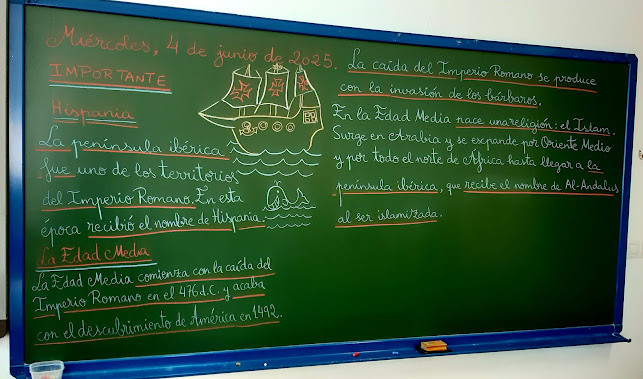 Miércoles, 4 de junio de 2025.
IMPORTANTE
Hispania
La península ibérica
fue uno de los territorios
del Imperio Romano. En esta
época recibió el nombre de Hispania.
La Edad Media
La Edad Media comienza con la caída del
Imperio Romano en el 476 d.C. y acaba
con el descubrimiento de América en 1492.
La caída del Imperio Romano se produce
con la invasión de los bárbaros.
En la Edad Media nace una religión: el Islam.
Surge en Arabia y se expande por Oriente Medio
y por todo el norte de África hasta llegar a la
península ibérica, que recibe el nombre de Al-Andalus
al ser islamizada.